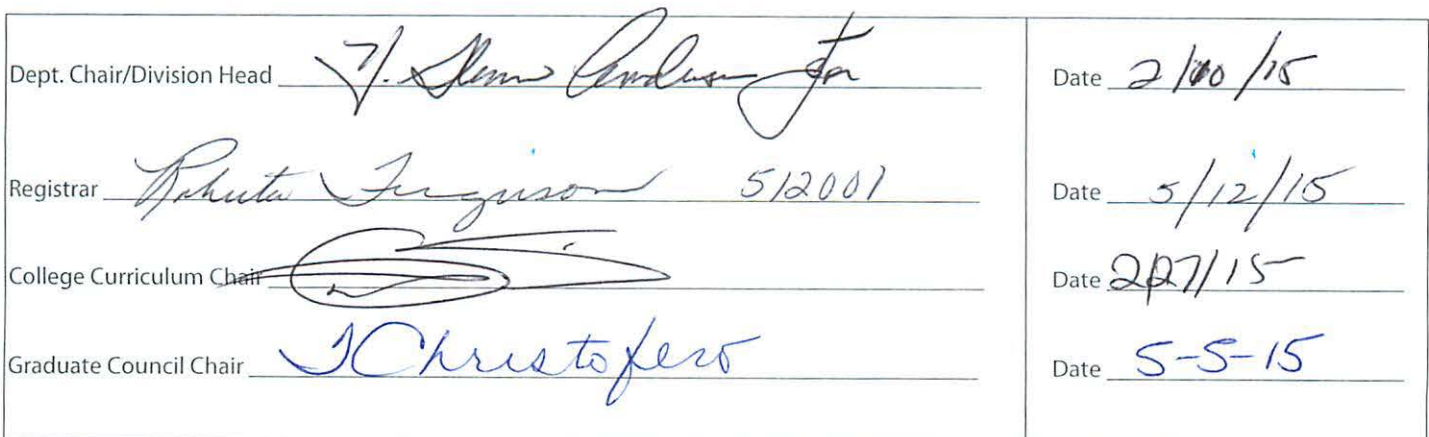 Dept. Chair/Division Head Date 2/10/15
Registrar Ferguson 512001 Date 5/12/15
College Curriculum Chair Date 2/27/15
Graduate Council Chair JChristofero Date 5-5-15